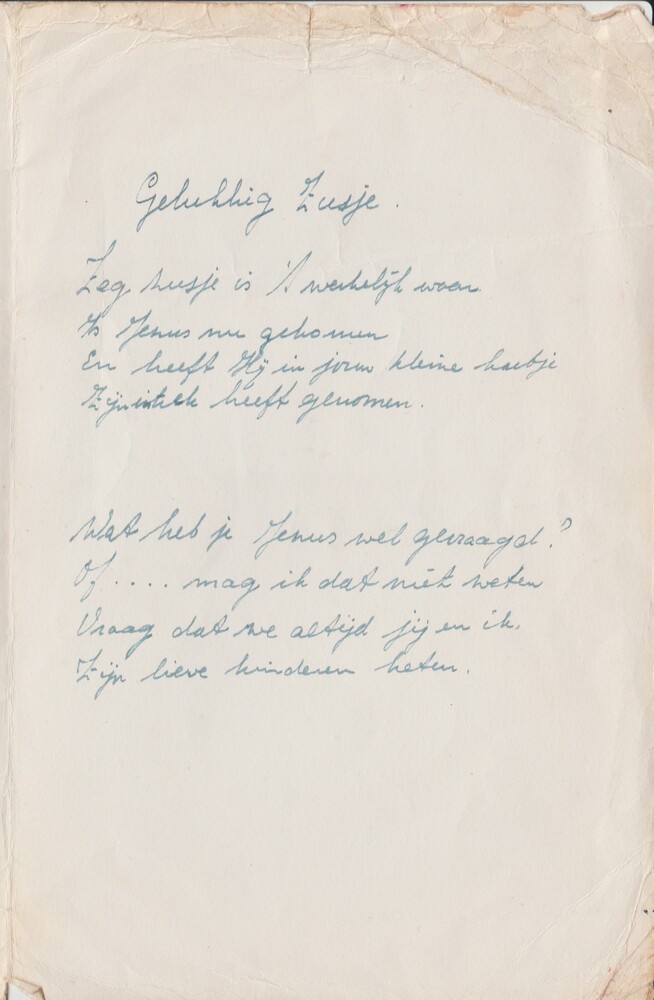 Gelukkig Zusje.
Zeg zusje is 't werkelijk waar
Is Jezus nu gekomen
En heeft Hij in jouw kleine hartje
Zijn intrek heeft genomen.
Wat heb je Jezus wel gevraagd?
Of .... mag ik dat niet weten
Vraag dat we altijd jij en ik.
Zijn lieve kinderen heten.